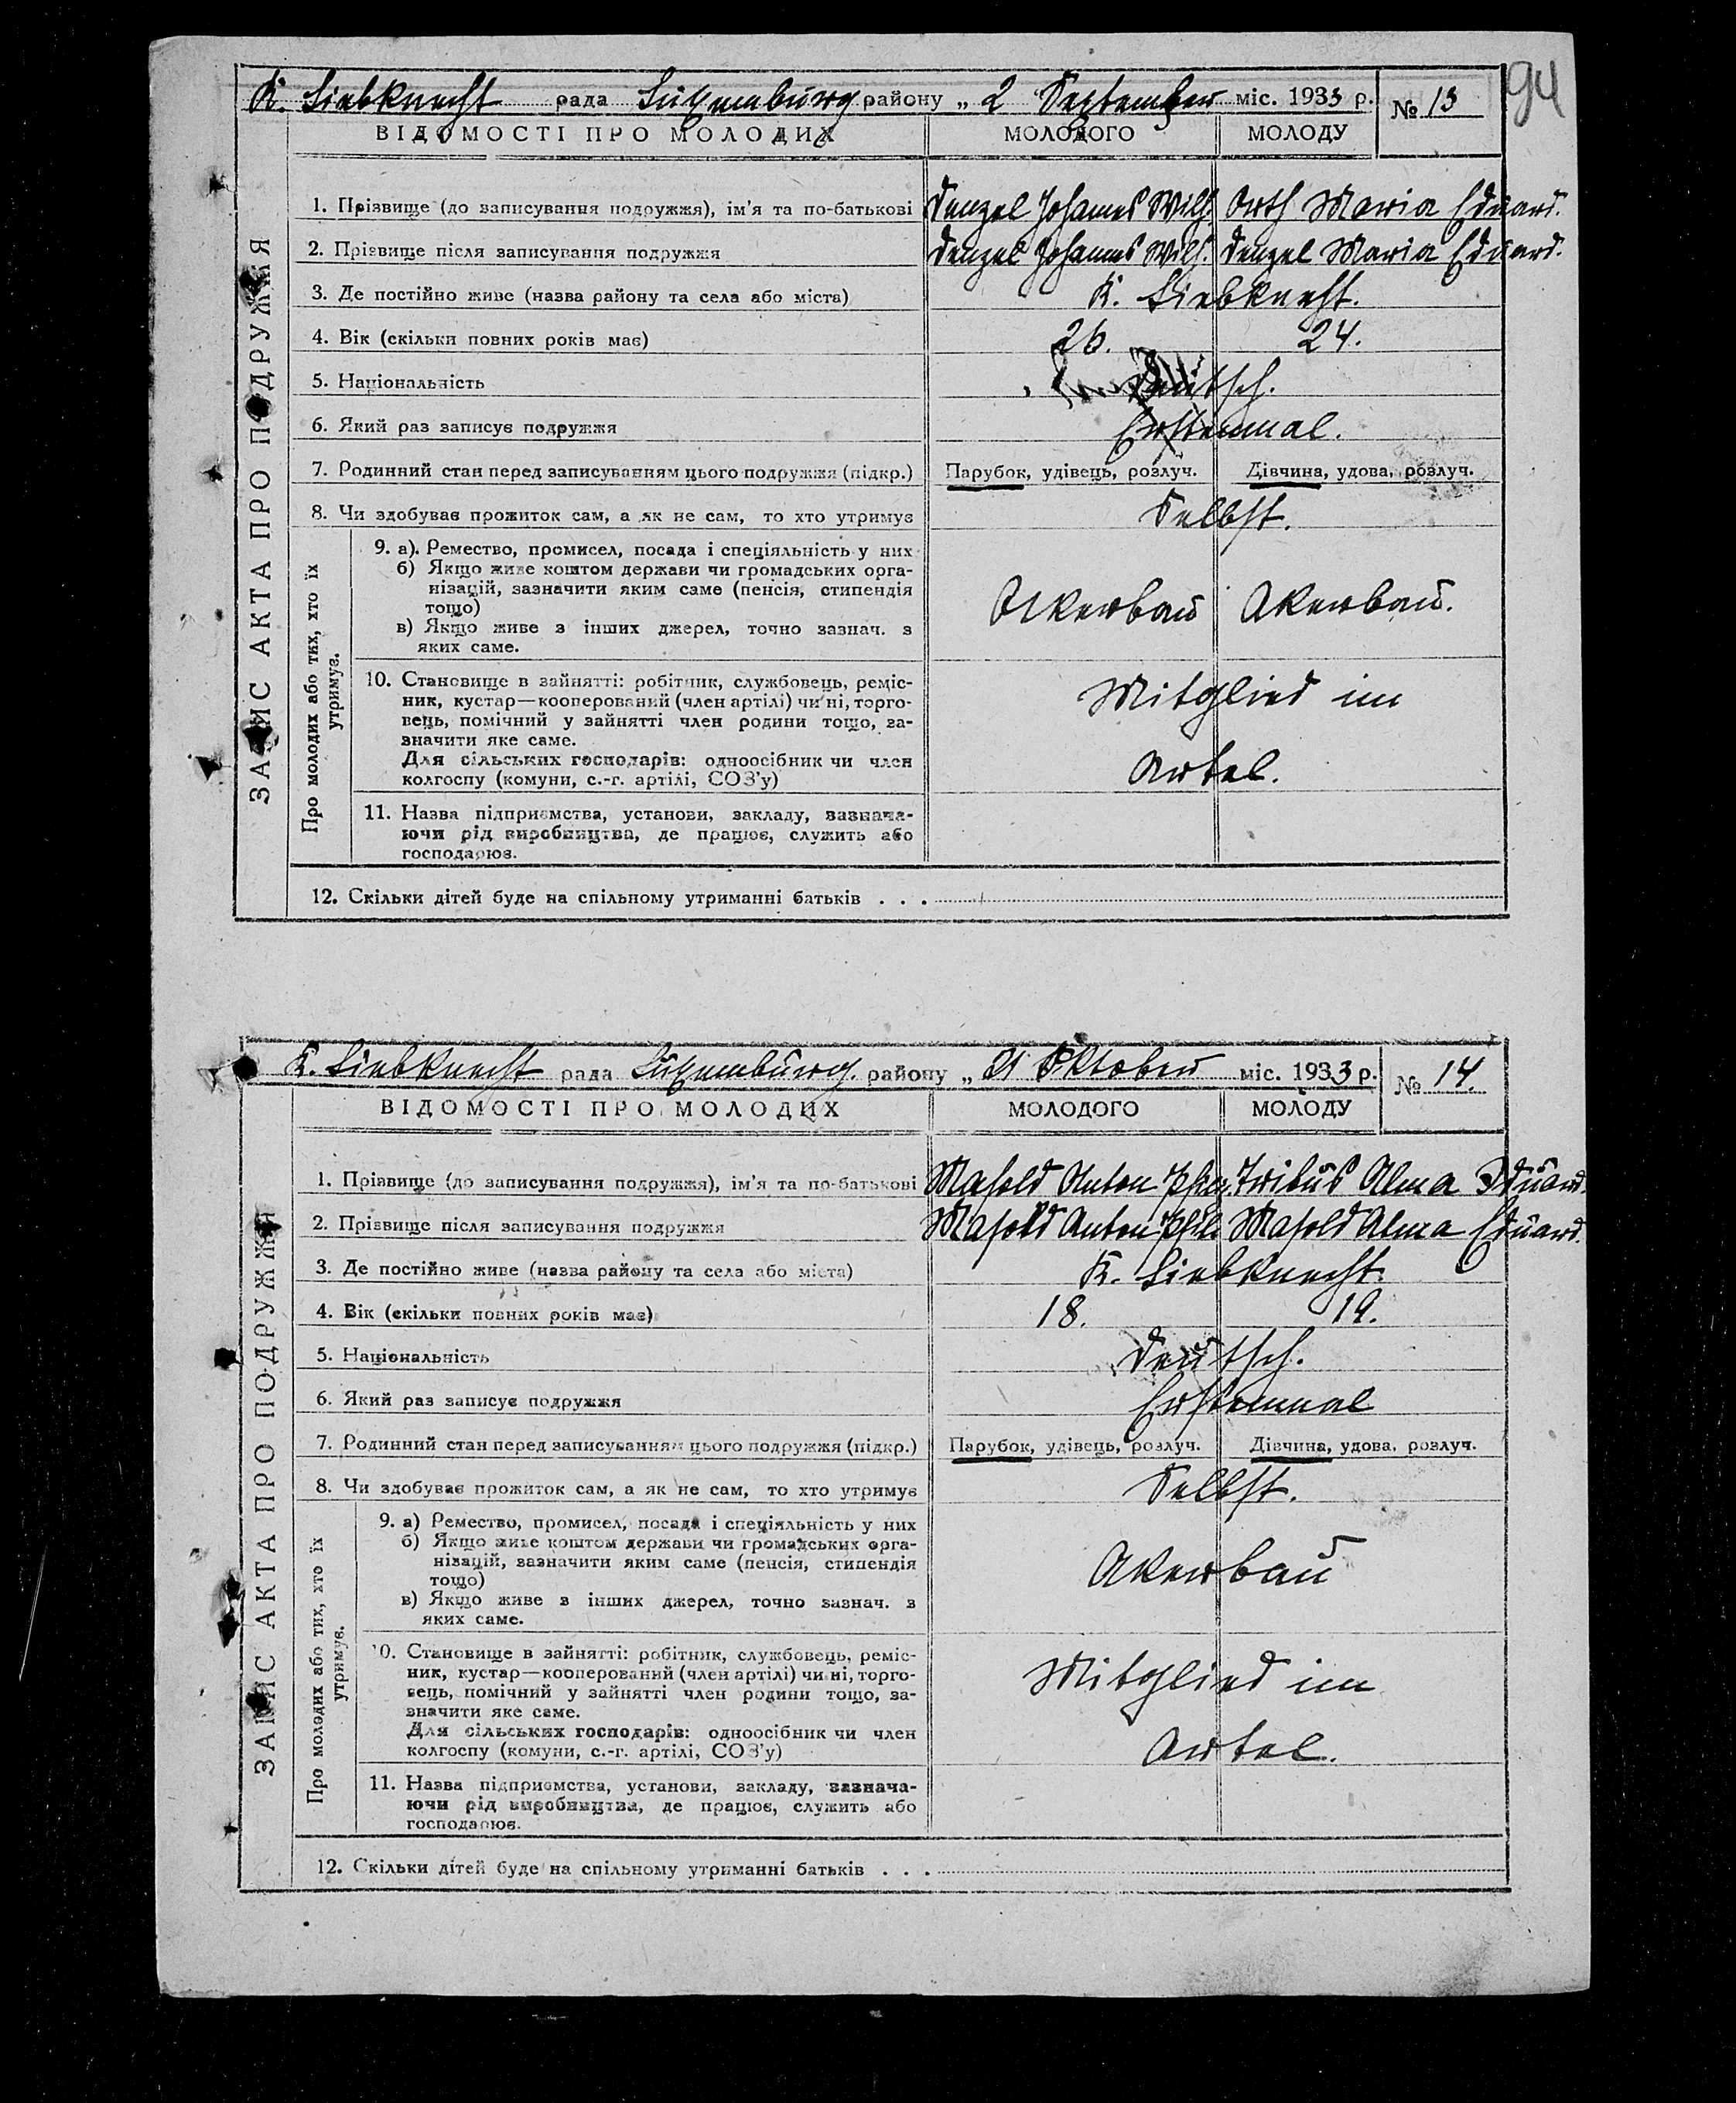 94
K. Liebknecht рада Luxemburg району „ 2 September міс. 1933 р. № 13
ВІДОМОСТІ ПРО МОЛОДИХ МОЛОДОГО МОЛОДУ
ЗАПИС АКТА ПРО ПОДРУЖЖЯ
1. Прізвище (до записування подружжя), ім'я та по-батькові Denzel Johannes Wilh. Orth Maria Eduard.
2. Прізвище після записування подружжя Denzel Johannes Wilh. Denzel Maria Eduard.
3. Де постійно живе (назва району та села або міста) K. Liebknecht.
4. Вік (скільки повних років має) 26. 24.
5. Національність Deutsch.
6. Який раз записує подружжя Erstenmal.
7. Родинний стан перед записуванням цього подружжя (підкр.) Парубок, удівець, розлуч. Дівчина, удова, розлуч.
8. Чи здобуває прожиток сам, а як не сам, то хто утримує Selbst.
Про молодих або тих, хто їх
утримує.
9. а). Ремество, промисел, посада і спеціяльність у них
б) Якщо живе коштом держави чи громадських орга-
нізацій, зазначити яким саме (пенсія, стипендія
тощо) Akerbau Akerbau.
в) Якщо живе з інших джерел, точно зазнач. з
яких саме.
10. Становище в зайнятті: робітник, службовець, реміс-
ник, кустар—кооперований (член артілі) чи ні, торго- Mitglied im
вець, помічний у зайнятті член родини тощо, за-
значити яке саме.
Для сільських господарів: одноосібник чи член Artel.
колгоспу (комуни, с.-г. артілі, СОЗ'у)
11. Назва підприємства, установи, закладу, зазнача-
ючи рід виробництва, де працює, служить або
господарює.
12. Скільки дітей буде на спільному утриманні батьків . . .
K. Liebknecht рада Luxemburg. району „ 21 Oktober міс. 1933 р. № 14.
ВІДОМОСТІ ПРО МОЛОДИХ МОЛОДОГО МОЛОДУ
ЗАПИС АКТА ПРО ПОДРУЖЖЯ
1. Прізвище (до записування подружжя), ім'я та по-батькові Masold Anton Tribus Alma Eduard.
2. Прізвище після записування подружжя Masold Anton Masold Alma Eduard.
3. Де постійно живе (назва району та села або міста) K. Liebknecht.
4. Вік (скільки повних років має) 18. 19.
5. Національність Deutsch.
6. Який раз записує подружжя Erstenmal
7. Родинний стан перед записуванням цього подружжя (підкр.) Парубок, удівець, розлуч. Дівчина, удова, розлуч.
8. Чи здобуває прожиток сам, а як не сам, то хто утримує Selbst.
Про молодих або тих, хто їх
утримує.
9. а) Ремество, промисел, посада і спеціяльність у них
б) Якщо живе коштом держави чи громадських орга-
нізацій, зазначити яким саме (пенсія, стипендія Akerbau
тощо)
в) Якщо живе з інших джерел, точно зазнач. з
яких саме.
10. Становище в зайнятті: робітник, службовець, реміс-
ник, кустар—кооперований (член артілі) чи ні, торго- Mitglied im
вець, помічний у зайнятті член родини тощо, за-
значити яке саме.
Для сільських господарів: одноосібник чи член Artel.
колгоспу (комуни, с.-г. артілі, СОЗ'у)
11. Назва підприємства, установи, закладу, зазнача-
ючи рід виробництва, де працює, служить або
господарює.
12. Скільки дітей буде на спільному утриманні батьків . . .